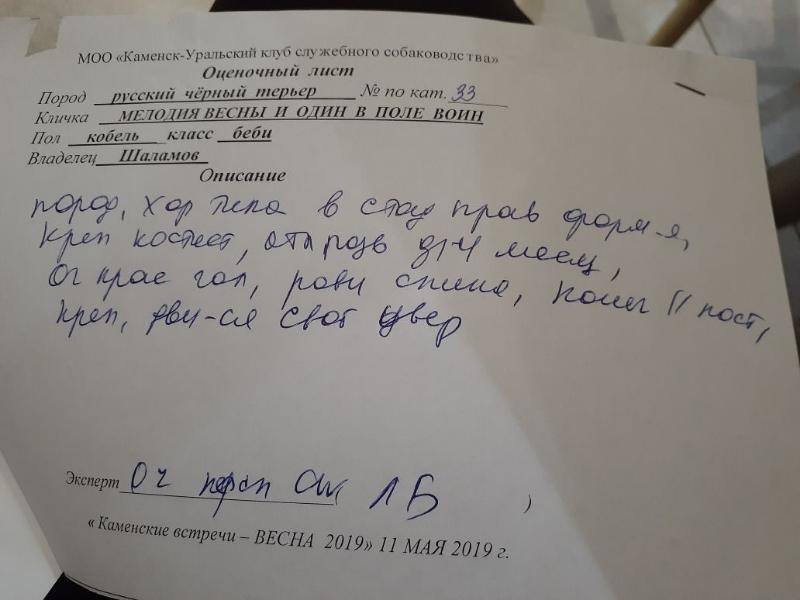 МОО «Каменск-Уральский клуб служебного собаководства»
Оценочный лист
Пород русский чёрный терьер № по кат. 33
Кличка МЕЛОДИЯ ВЕСНЫ И ОДИН В ПОЛЕ ВОИН
Пол кобель класс беби
Владелец Шаламов
Описание
пород, хор типа в стад прав форм-я,
креп костяст, отл разв д/4 месяц,
Оч крас гол, ровн спина, конеч // пост,
креп, дви-ся своб увер
Эксперт Оч персп ЛБ )
« Каменские встречи – ВЕСНА 2019» 11 МАЯ 2019 г.